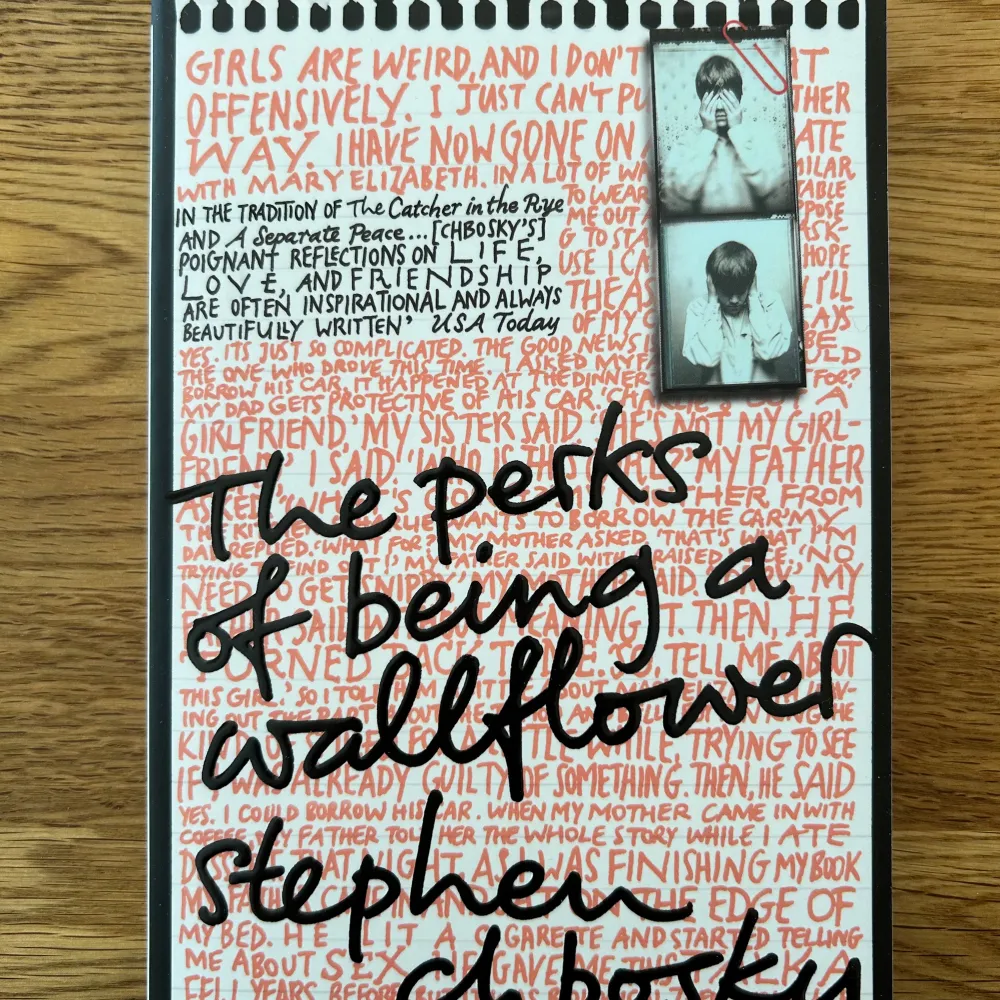 GIRLS ARE WEIRD, AND I DON'T
OFFENSIVELY. I JUST CAN'T PU THER
WAY. I HAVE NOW GONE ON ATE
WITH MARY ELIZABETH. IN A LOT OF WA MILAR
TO WEAR TABLE
IN THE TRADITION OF The Catcher in the Rye
ME OUT POSE
AND A Separate Peace...[CHBOSKY'S]
G TO STA ASK-
POIGNANT REFLECTIONS ON LIFE,
USE I CA HOPE
LOVE, AND FRIENDSHIP
THE AS I'LL
ARE OFTEN INSPIRATIONAL AND ALWAYS
OF MY AYS
BEAUTIFULLY WRITTEN' USA Today
YES. ITS JUST SO COMPLICATED. THE GOOD NEWS I BE
THE ONE WHO DROVE THIS TIME. I ASKED MY F OULD
BORROW HIS CAR. IT HAPPENED AT THE DINNER FOR?
MY DAD GETS PROTECTIVE OF HIS CAR. A
GIRLFRIEND,' MY SISTER SAID. 'HE'S NOT MY GIRL-
FRIEND,' I SAID. MY FATHER
ASKED. FROM
The perks
WANTS TO BORROW THE CAR' MY
DAD REPLIED. 'WHAT FOR?' MY MOTHER ASKED. 'THAT'S WHAT I'M
TRYING FIND OUT,' MY FATHER SAID WITH RAISED 'NO
NEED TO GET SNIPPY,' MY MOTHER SAID. MY
of being a
SAID THEN, HE
TURNED BACK TO ME. SO, TELL ME ABOUT
THIS GIRL.' SO I TOLD HIM A LITTLE ABOUT
wallflower
KIND OF A LITTLE WHILE, TRYING TO SEE
IF I WAS ALREADY GUILTY OF SOMETHING. THEN, HE SAID
YES. I COULD BORROW HIS CAR. WHEN MY MOTHER CAME IN WITH
COFFEE, MY FATHER TOLD HER THE WHOLE STORY WHILE I ATE
DESSERT. THAT NIGHT, AS I WAS FINISHING MY BOOK
stephen
MY FATHER CAME IN AND THE EDGE OF
MY BED. HE LIT A CIGARETTE AND STARTED TELLING
ME ABOUT SEX. HE GAVE ME THIS TALK A
chbosky
FEW YEARS BEFORE